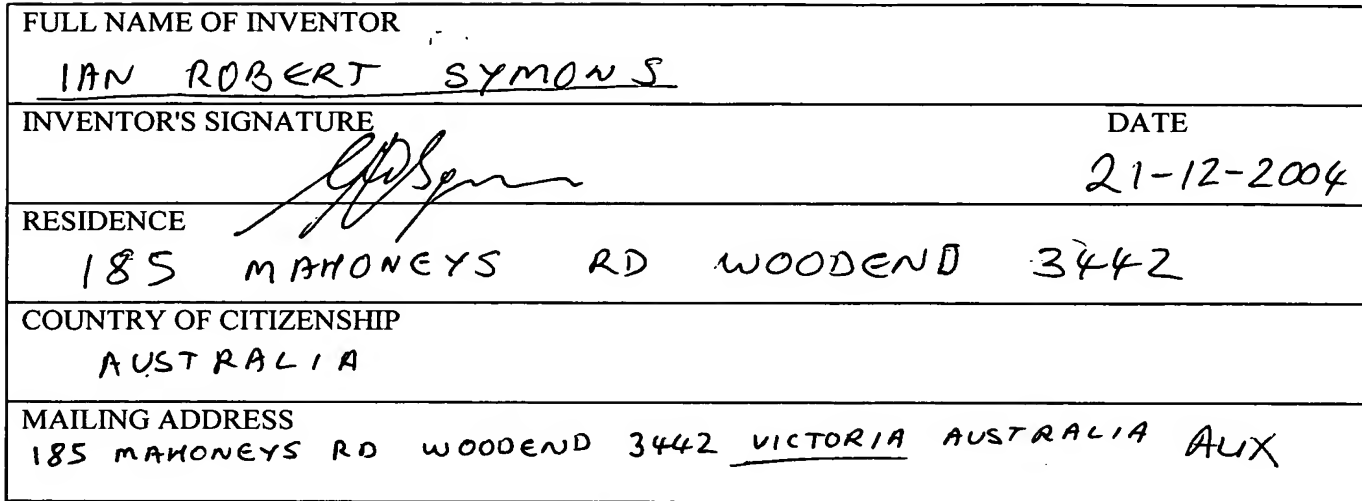 FULL NAME OF INVENTOR
IAN ROBERT SYMONS
INVENTOR'S SIGNATURE DATE
21-12-2004
RESIDENCE
185 MAHONEYS RD WOODEND 3442
COUNTRY OF CITIZENSHIP
AUSTRALIA
MAILING ADDRESS
185 MAHONEYS RD WOODEND 3442 VICTORIA AUSTRALIA AUX